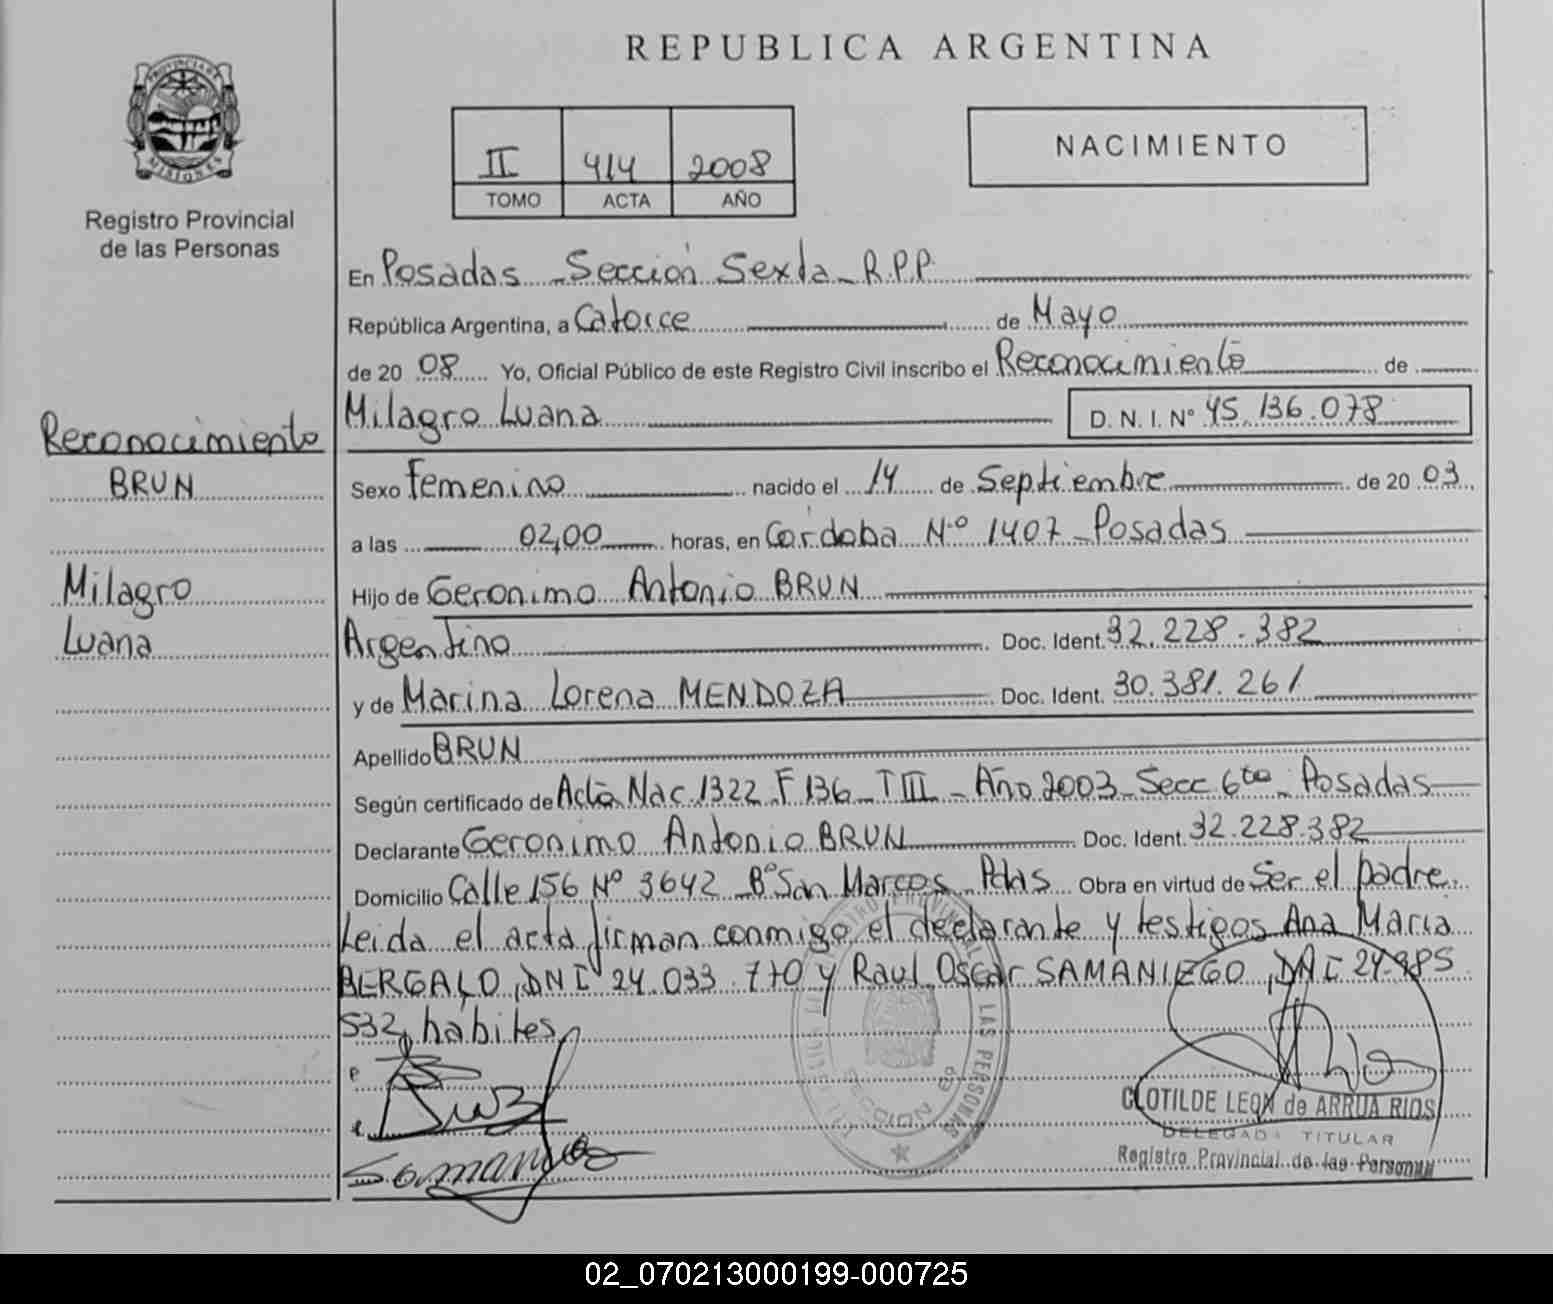 REPUBLICA ARGENTINA
PROVINCIA DE
MISIONES
Registro Provincial
de las Personas
II 414 2008
TOMO ACTA AÑO
NACIMIENTO
En Posadas Sección Sexta R.P.P.
República Argentina, a Catorce de Mayo
de 20 08 Yo, Oficial Público de este Registro Civil inscribo el Reconocimiento de
Milagro Luana D. N. I. N° 45.136.078
Reconocimiento
BRUN
Milagro
Luana
Sexo Femenino nacido el 14 de Septiembre de 20 03
a las 02,00 horas, en Córdoba N° 1407 Posadas
Hijo de Geronimo Antonio BRUN
Argentino Doc. Ident. 32.228.382
y de Marina Lorena MENDOZA Doc. Ident. 30.381.261
Apellido BRUN
Según certificado de Acta Nac. 1322 F 136 T III Año 2003 Secc 6ta Posadas
Declarante Geronimo Antonio BRUN Doc. Ident. 32.228.382
Domicilio Calle 156 N° 3642 B° San Marcos Pdas Obra en virtud de Ser el padre.
Leida el acta firman conmigo el declarante y testigos Ana Maria
BERGALO, DNI 24.033.770 y Raul Oscar SAMANIEGO, DNI 24.985
532, hábiles
CLOTILDE LEON de ARRUA RIOS
DELEGADA TITULAR
Registro Provincial de las Personas
02_070213000199-000725